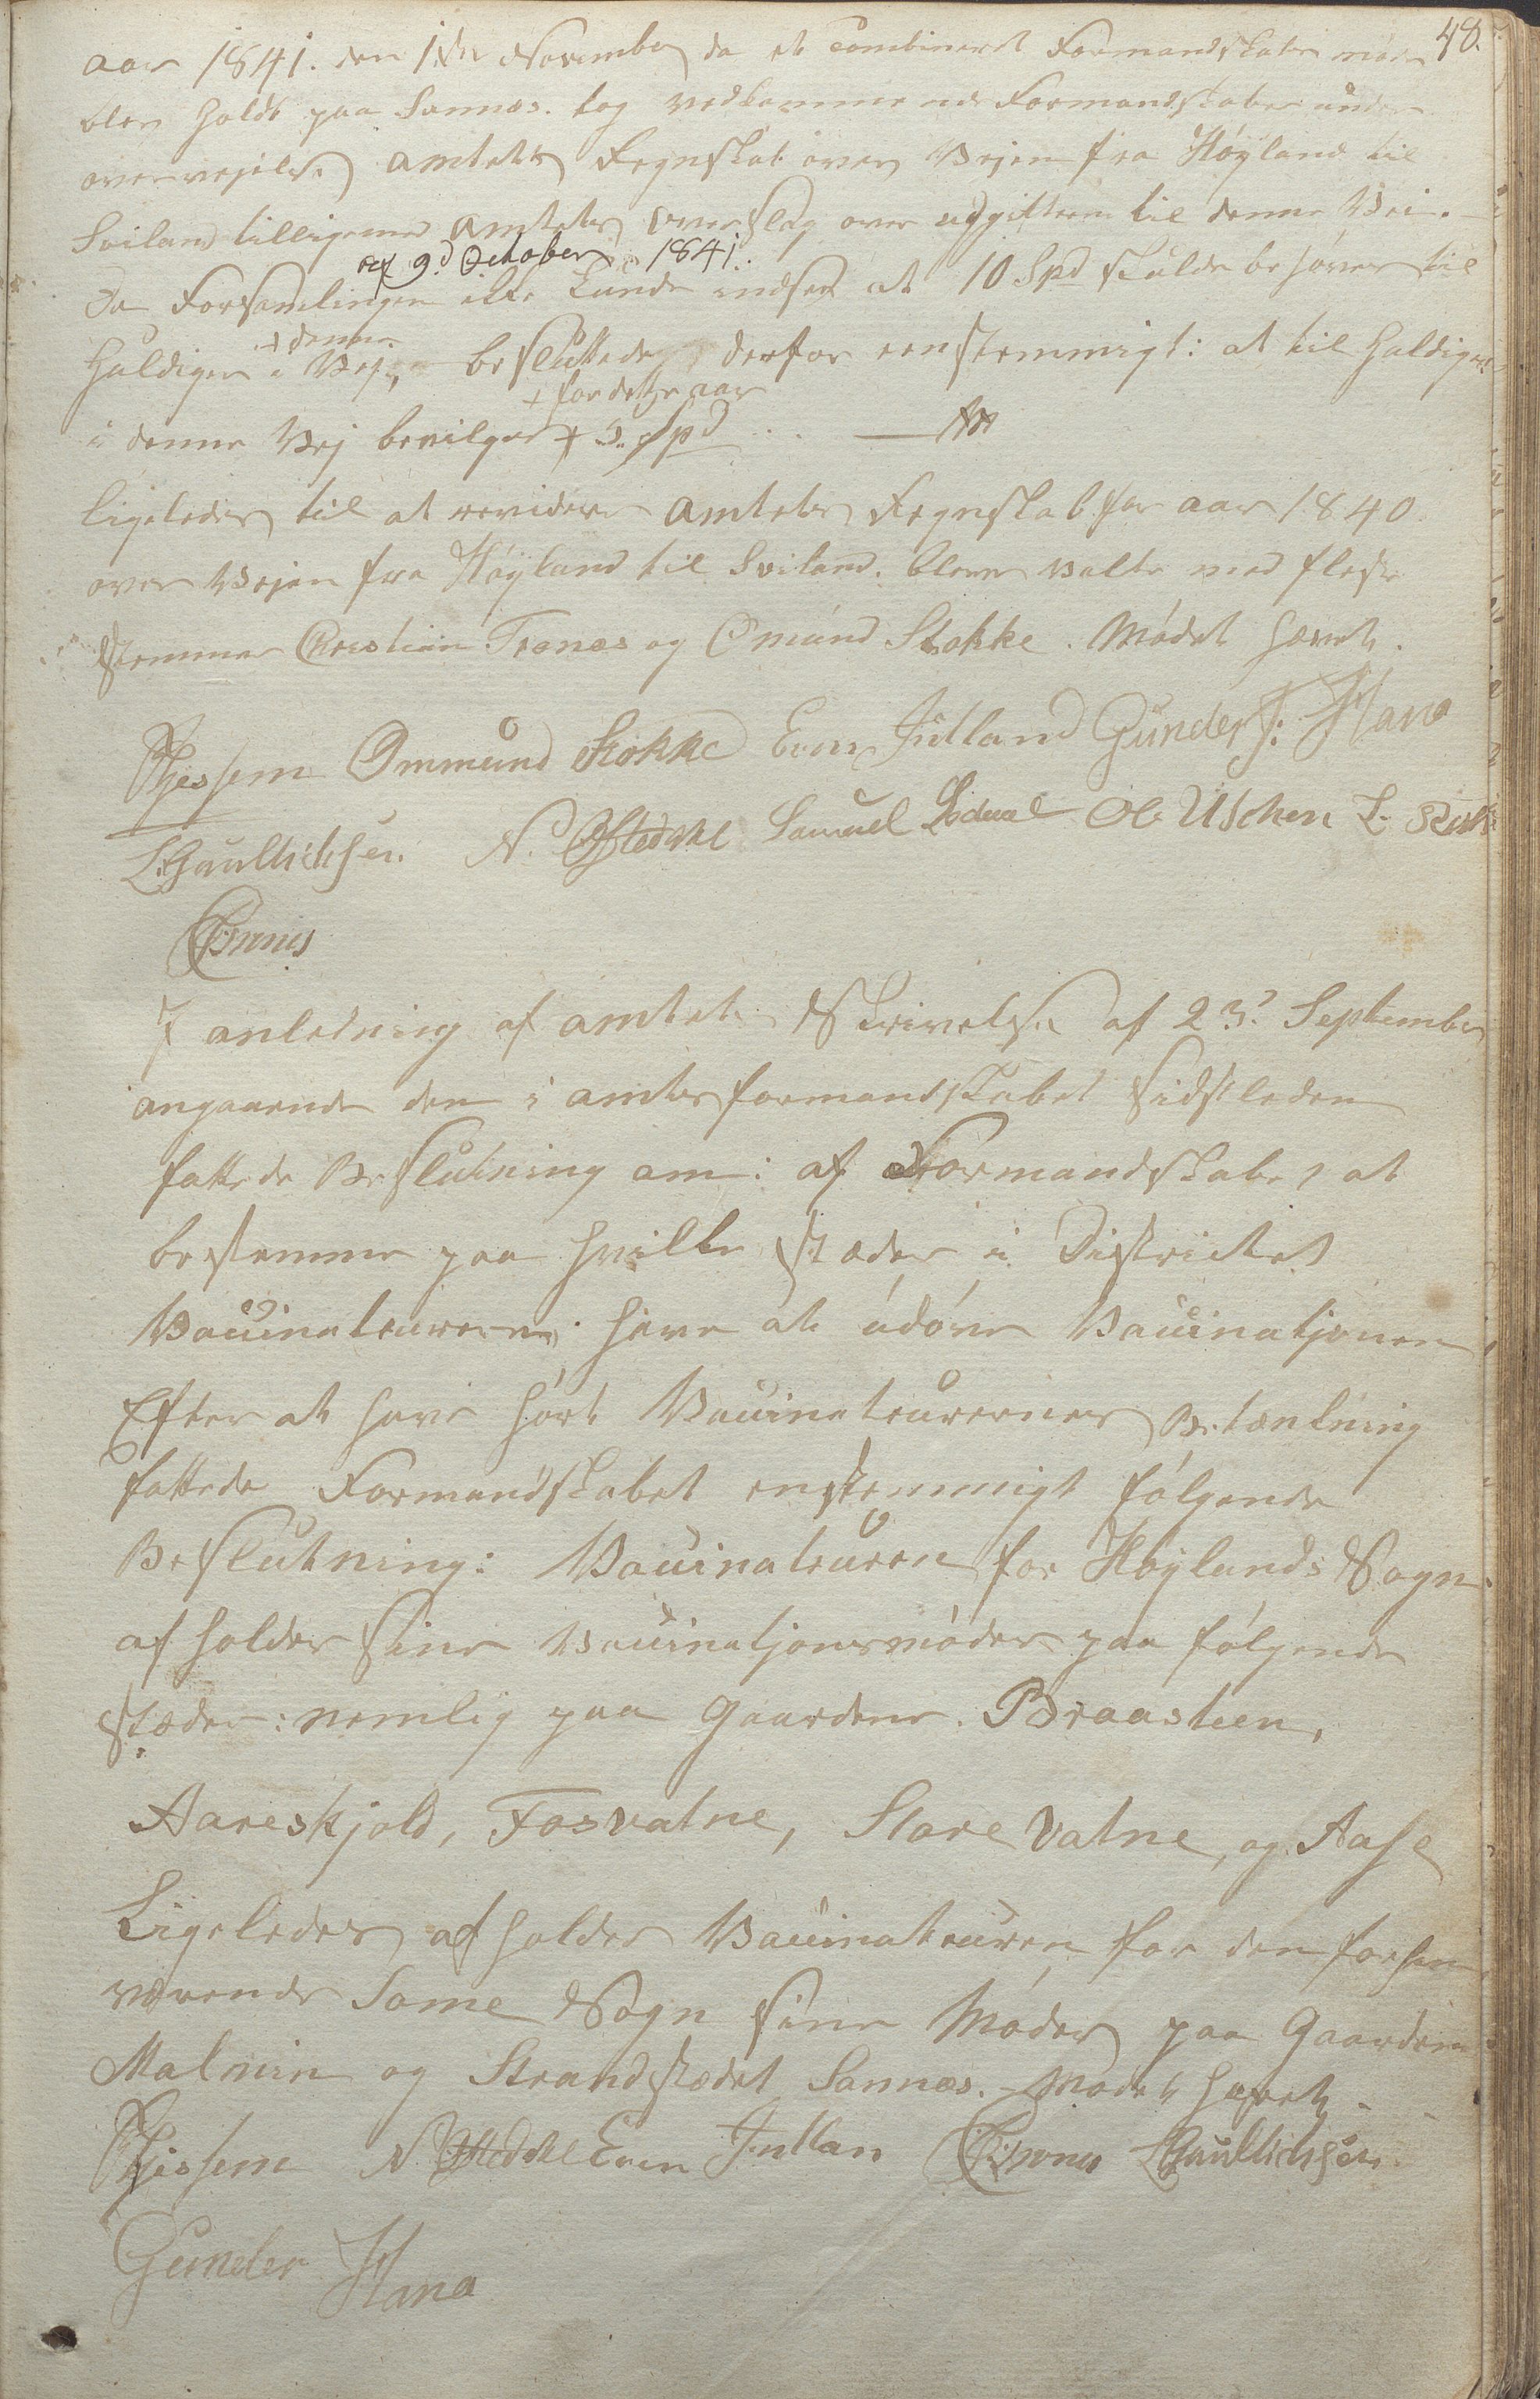 48.
aar 1841. den 1ste November da et Combineret Formandskabs möde
blev holdt paa Sannæs. tog vedkommende Formandskaber under
overvejelse Amtets Regnskab over Vejen fra Höyland til
Sviland tilligemed Amtets overslag over udgifterne til denne Vei.
af 9d October 1841.
Da Forsamlingen ikke kunde indsee at 10 Spd skulde behöves til
+ denne
Huldiger i Vej, besluttedes derfor eenstemmigt: at til Huldiger
+ for dette aar
i denne Vej bevilges + 5. Spd
ligeledes til at revidere Amtets Regnskab for aar 1840
over Vejen fra Höyland til Sviland. bleve valte med fleste
stemmer Christian Tronæs og Omund Stokke. Mödet hævet.
Ommund Stokke Even Jutland Gunder J: Hana
L. Gaultichsen. N. Oftedahl Samuel Lodual Ole Uschen L.
I anledning af amtets Skrivelse af 23d September
angaaende den i amtsformandskabet sidstleden
fattede Beslutning om: af Formandskabet at
bestemme paa hvilke stæder i Districtet
Vaccinateurerne have at udöve Vaccinatjonen
Efter at have hört Vaccinateurernes Betænkning
fattede Formandskabet enstemmigt fölgende
Beslutning: Vaccinateuren for Höylands Sogn
afholder sine Vaccinatjonsmöder paa fölgende
stæder: nemlig paa Gaardene Braasteen,
Aareskjold, Fosvatne, Store Vatne, og Aase
Ligeledes afholder Vaccinateuren for den forhen
værende Some Sogn sine Möder paa Gaarden
Malmin og Strandstædet Sannæs. Mödet hævet.
N. Oftedahl Even Jutlan L Gaultichsen.
Gunder Hana